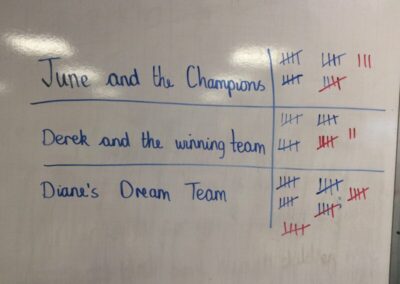 June and the Champions
Derek and the winning team
Diane's Dream Team